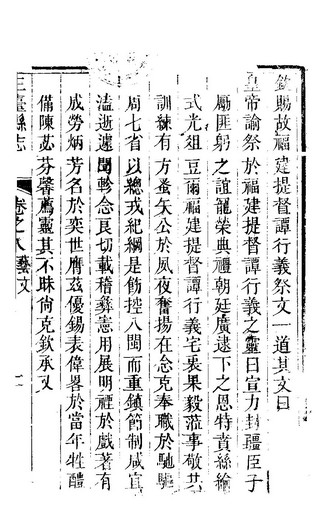 欽賜故福建提督譚行義祭文一道其文曰
皇帝諭祭於福建提督譚行義之靈曰宣力封疆臣子
勵匪躬之誼寵榮典禮朝廷廣逮下之恩特賁絲綸
式光俎豆爾福建提督譚行義宅衷果毅蒞事敬共
訓練有方蚤矢公於夙夜奮揚在念克奉職於馳驅
周七省以總戎紀綱是飭控八閩而重鎮節制咸宜
溘逝遽聞軫念良切載稽彝憲用展明禋於戲著有
成勞炳芳名於奕世膺茲優錫表偉畧於當年牲醴
備陳苾芬馨薦靈其不昧尚克欽承又
三臺縣志
卷之八藝文